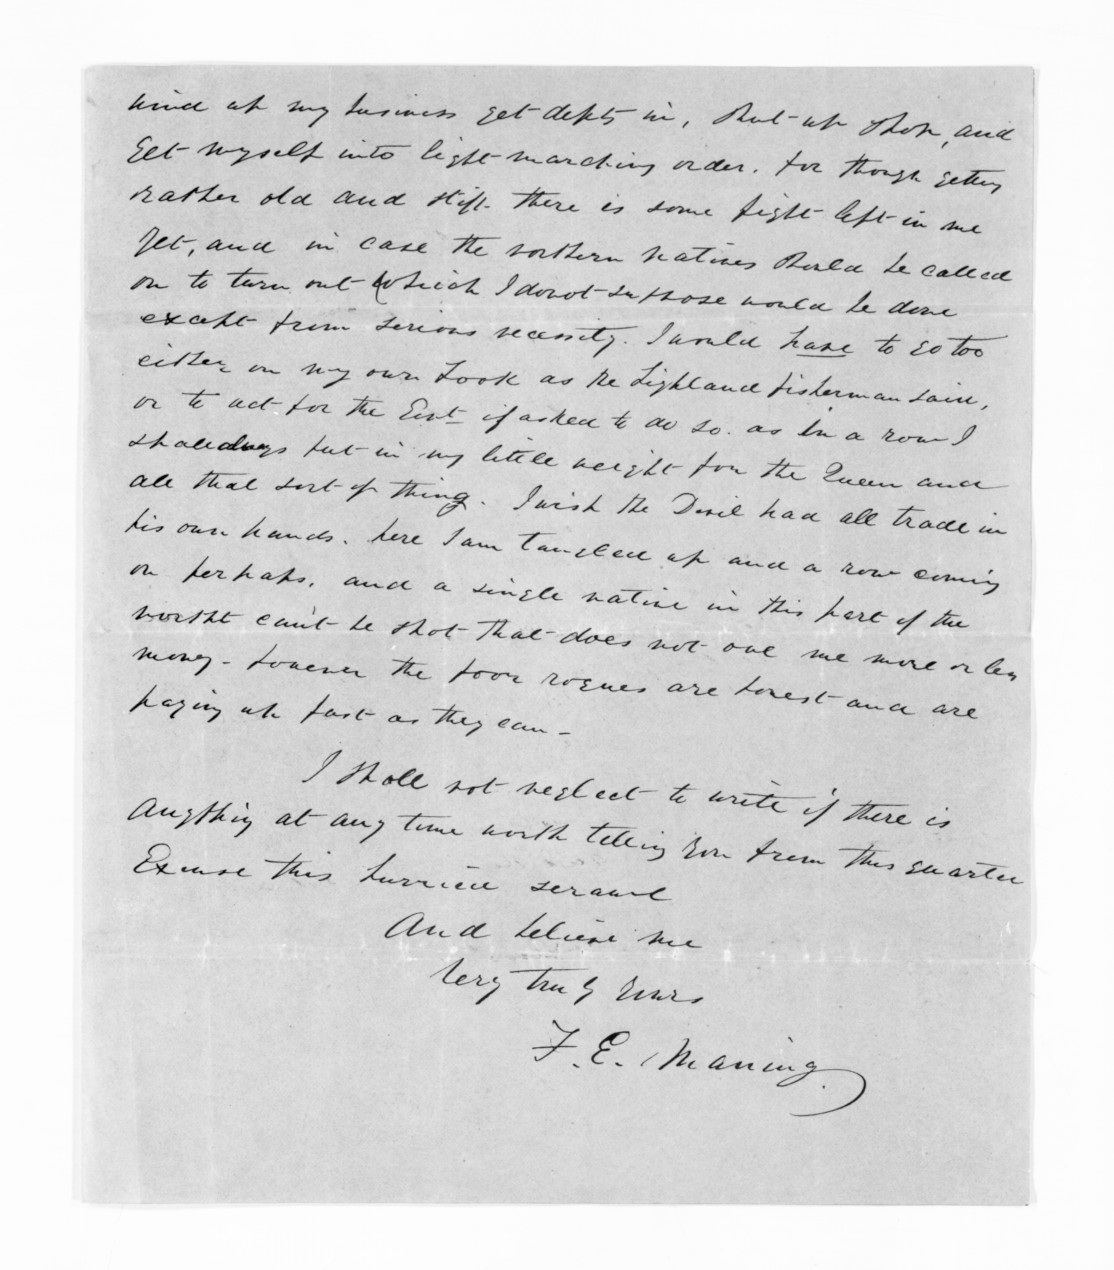 wind up my business get debts in, Shut up Shop, and
get myself into light marching order. for though getting
rather old and stiff there is some fight left in me
yet, and in case the northern natives should be called
on to turn out (which I do not suppose would be done
except from serious necessity. I would have to go too
either on my own hook as the highland fisherman said,
or to act for the Govt if asked to do so. as in a row I
shall always put in my little weight for the Queen and
all that sort of thing. I wish the Devil had all trade in
his own hands. here I am tangled up and a row coming
on perhaps. and a single native in this part of the
world can't be shot that does not owe me more or less
money - however the poor rogues are honest and are
paying up fast as they can -
I shall not neglect to write if there is
anything at any time worth telling you from this quarter
Excuse this hurried scrawl
And believe me
Very truly yours
F. E. Maning.